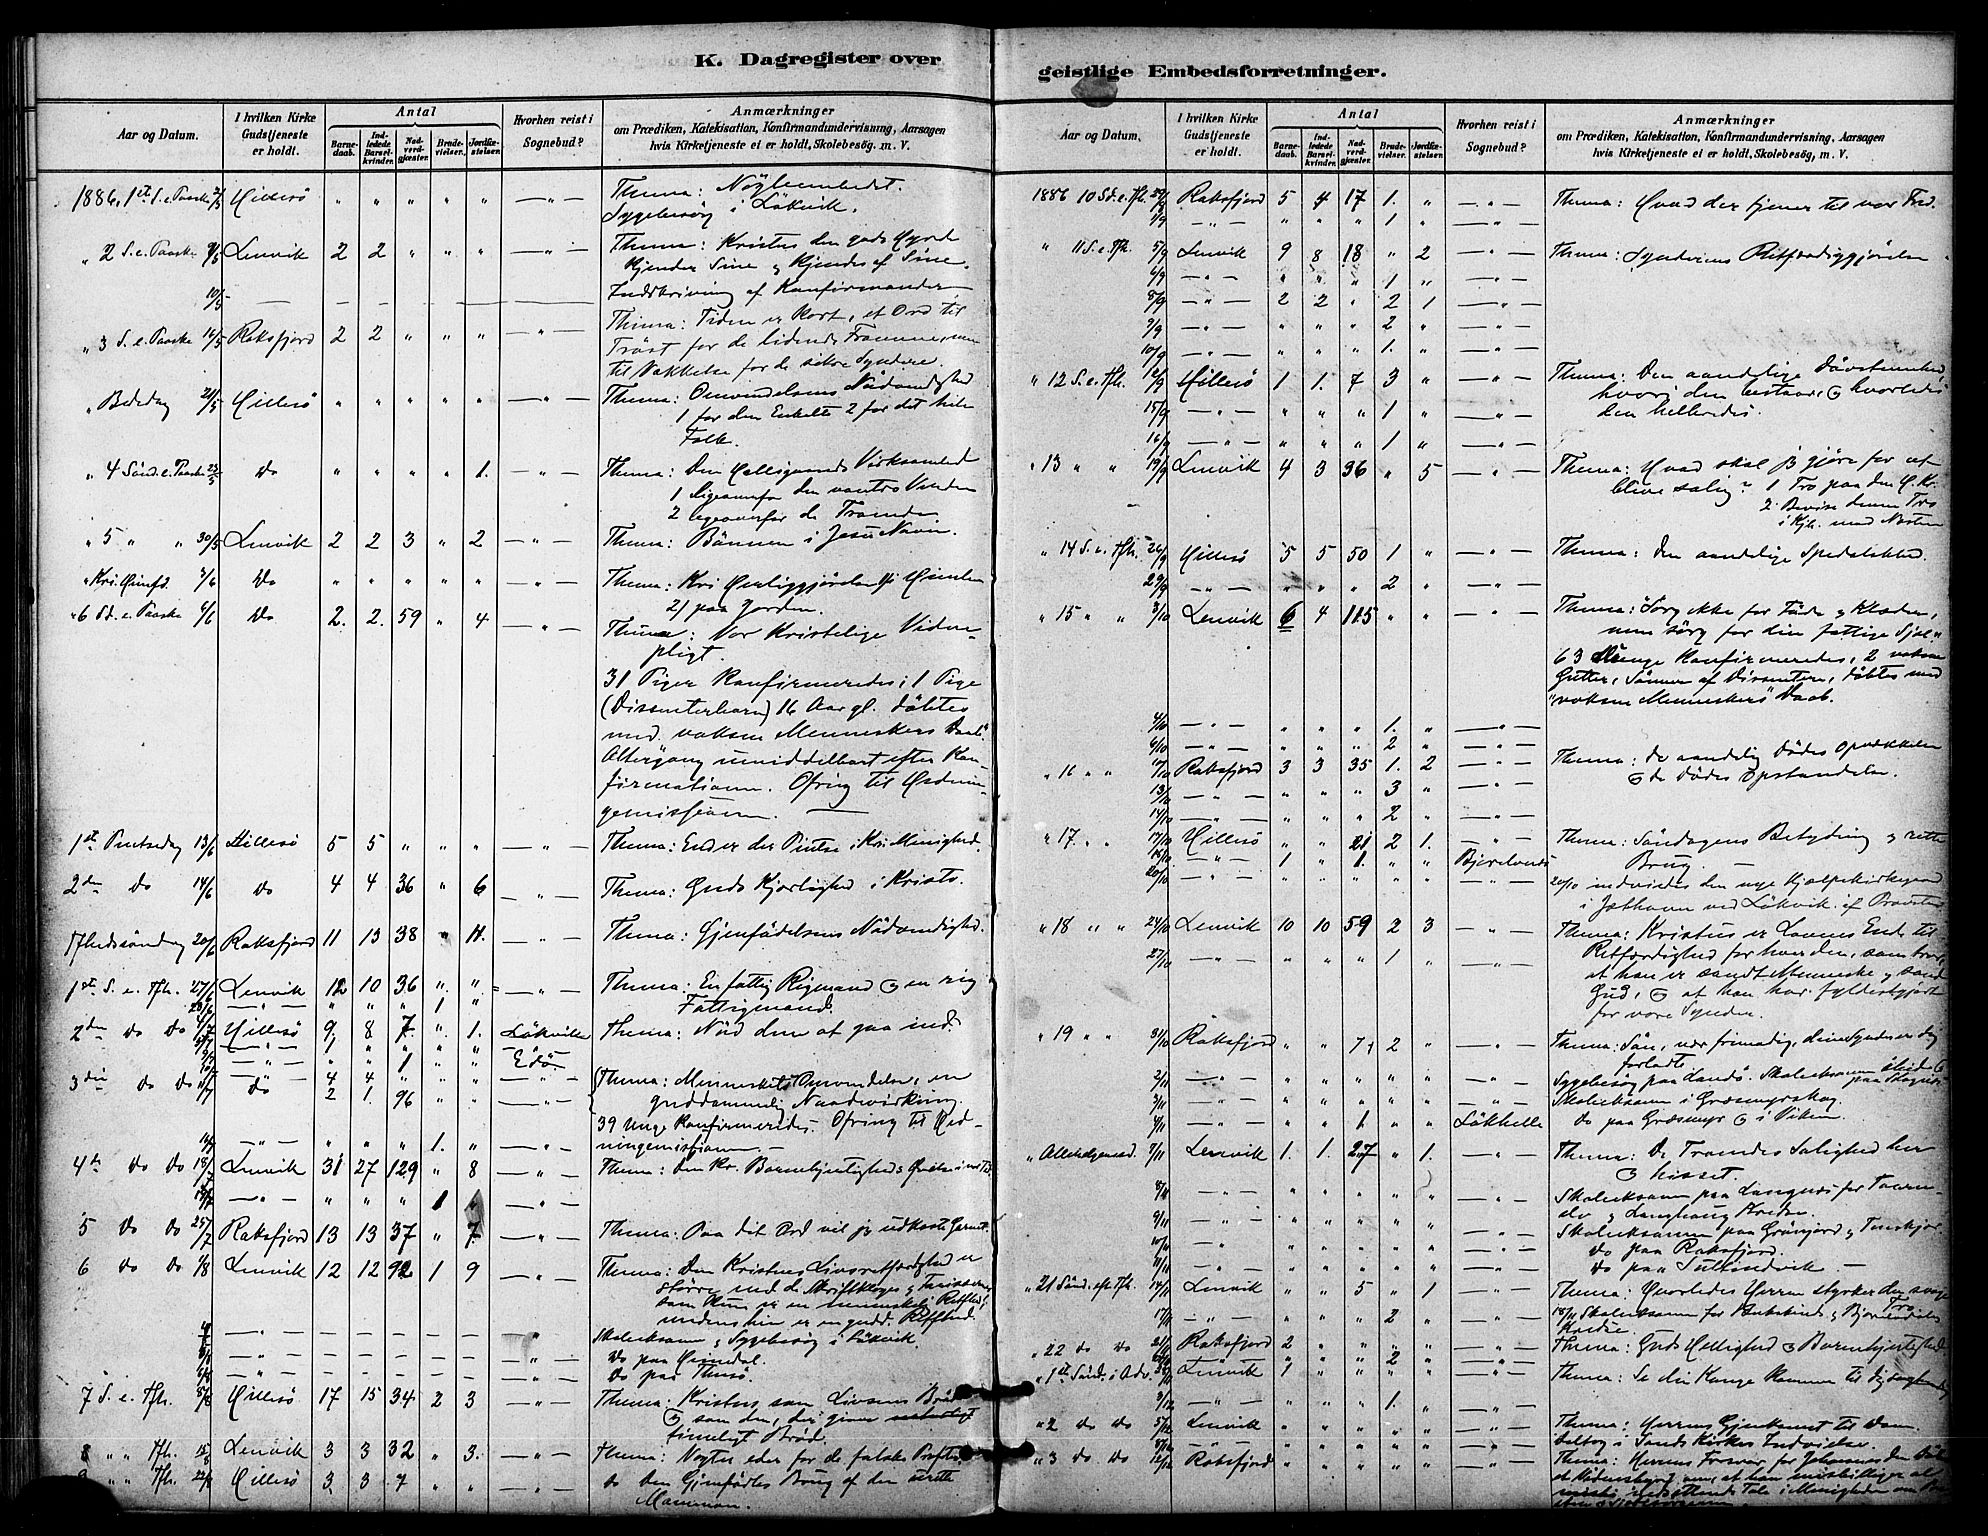 K. Dagregister over
Aar og Datum.
I hvilken Kirke Gudstjeneste er holdt.
Antal
Barnedaab.
Indledede Barselkvinder.
Nadverdgjester.
Brudevielser.
Jordfæstelser.
Hvorhen reist i Sognebud?
Anmærkninger
om Prædiken, Katekisation, Konfirmandundervisning, Aarsagen
hvis Kirketjeneste ei er holdt, Skolebesøg, m. V.
1886, 1st S. e. Paaske 2/5 Hillesö " " " " " — " — Thema: Nøgleembedet.
Sygebesög i Lökvik.
" 2 S. e. Paaske 9/5 Lenvik 2 2 " " " — " — Thema: Kristus den gode Hyrde
Kjender Sine og Kjendes af Sine.
10/5 Indskrivning af Konfirmander.
" 3 S. e. Paaske 16/5 Roksfjord 2 2 " " " — " — Thema: Tiden er kort, et Ord til
Tröst for de lidende Fromme, men
til Vækkelse for de sikre Syndere.
" Bededag 21/5 Hillesö " " " " " — " — Thema: Omvendelsens Nödvendighed
1 for den Enkelte 2 for det hele
Folk.
" 4 Sönd. e. Paaske 23/5 Do " " " " 1. — " — Thema: Den Helligaands Virksomhed
1 ligeoverfor den vantro Verden
2 ligeoverfor de Troende
" 5 " " 30/5 Lenvik 2 2 3 " 2 — " — Thema: Bönnen i Jesu Navn.
" Kri. Himfd. 3/6 Do " " " " " — " — Thema: Kri Herliggjörelse 1) i Himlen
2) paa Jorden.
" 6 Sd. e. Paaske 6/6 Do 2. 2. 59 " 4 — " — Thema: Vor Kristelige Vidne-
pligt.
31 Piger Konfirmeredes; 1 Pige
(Dissenterbarn) 16 Aar gl. döbtes
med voksne Menneskers Daab.
Altergang umiddelbart efter Kon-
firmationen. Ofring til Hednin-
gemissionen.
1st Pintsedag 13/6 Hillesö 5 5 " " " — " — Thema: End er der Pintse i Kri Menighed.
2den Do 14/6 Do 4 4 36 " 6 — " — Thema: Guds Kjærlighed i Kristo.
Trfhedssöndag 20/6 Roksfjord 11 13 38 " 11. — " — Thema: Gjenfödelsens Nödvendighed.
1st S. e. Trfh. 27/6 Lenvik 12 10 36 " " — " — Thema: En fattig Rigmand og en rig
28/6 — " — " " " 1 " Fattigmand.
2den Do Do 4/7 Hillesö 9 8 7 " 1. Lökvik Thema: Nöd dem at gaa ind.
— " — Edö
3die Do Do 11/7 Do 2 1. 96 " " — " — Thema: Menneskets Omvendelse, en
guddommelig Naadevirkning.
39 Unge Konfirmeredes. Ofring til Hed-
— " — " " " 1. " — " — ningemissionen —
4de Do Do 18/7 Lenvik 31 27 129 " 8 — " — Thema: Den Kr. Barmhjertighed
— " — " " " 1 " — " —
5 Do Do 25/7 Roksfjord 13 13 37 " 7 — " — Thema: Paa dit Ord vil jeg udkaste Garnet.
6 Do Do 1/8 Lenvik 12 12 92 1 9 — " — Thema: Den Kristnes Livsretfærdighed er
större end de Skriftkloges og Farisæernes
som Kun er en menneskelig Retfhed,
medens hin er en gudd. Retfhed.
Skoleeksamen og Sygebesög i Lökvik.
Do paa Gisundal.
Do paa
7 S. e. Trfh. 8/8 Hillesö 17 15 34 2 3 — " — Thema: Kristus som Livsens Bröd
og som den, der giver
timeligt Bröd.
8 " " Trfh. 15/8 Lenvik 3 3 32 " 3. — " — Thema: Vogter eder for de falske Profeter
9 " " Trfh. 22/8 Hillesö 3 3 7 " " — " — Do Den Gjenfödtes Brug af den urette
Mammon.
geistlige Embedsforretninger.
Aar og Datum.
I hvilken Kirke Gudstjeneste er holdt.
Antal
Barnedaab.
Indledede Barselkvinder.
Nadverdgjester.
Brudevielser.
Jordfæstelser.
Hvorhen reist i Sognebud?
Anmærkninger
om Prædiken, Katekisation, Konfirmandundervisning, Aarsagen
hvis Kirketjeneste ei er holdt, Skolebesøg, m. V.
1886 10 Sd. e. Trfh. 29/8 Roksfjord 5 4 17 1. " — " — Thema: Hvad der tjener til vor Fred.
1/9 — " — " " " 1 " — " —
" 11 S. e. Trfh. 5/9 Lenvik 9 8 18 " 2 — " — Thema: Synderens Retfærdiggjörelse.
6/9 — " — " " " 1 " — " —
8/9 — " — 2 2 " 2 1 — " —
9/9 — " — " " " 2 " — " —
10/9 — " — " " " 1. " — " —
" 12 S. e. Trfh. 12/9 Hillesö 1 1. 7 3 " — " — Thema: Den aandelige Dövstumhed,
hvori den bestaar, og hvorledes
15/9 — " — " " " 1 " — " — den helbredes.
16/9 — " — " " " 1 " — " —
" 13 " " 19/9 Lenvik 4 3 36 " 5 — " — Thema: Hvad skal jeg gjöre for at
blive salig? 1 Tro paa den H. Kr.
2. Bevise denne Tro
i Kjh. mod Næsten
" 14 S. e. Trfh. 26/9 Hillesö 5 5 50 1 " — " — Thema: Den aandelige Spedalskhed.
29/9 — " — " " " 2 " — " —
" 15 " " 3/10 Lenvik 6 4 115 " " — " — Thema: "Sörg ikke for Föde og Klæder,
men sörg for din fattige Sjæl"
63 Unge Konfirmeredes, 2 voksne
Gutter, Sönner af Dissentere, döbtes med
"voksne Menneskers" Daab.
4/10 — " — " " " 1. " — " —
6/10 — " — " " " 2 " — " —
" 16 " " 10/10 Roksfjord 3 3 35 1. 2 — " — Thema: De aandelig Dödes Opvækkelse
og de Dödes Opstandelse.
13/10 — " — " " " 3 " — " —
14/10 — " — " " " 2 " — " —
" 17 " " 17/10 Hillesö " " 21 2 1. — " — Thema: Söndagens Betydning og rette
18/10 — " — 1 " 1. " " Bjorelvnes Brug —
20/10 " " " " " — " — 20/10 indviedes den nye Hjælpekirkegaard
i Jöthavn ved Lökvik af Provsten
" 18 " " 24/10 Lenvik 10 10 59 2 3 — " — Thema: Kristus er Lovens Ende til
27/10 — " — " " " 1 " — " — Retfærdighed for hver den, som tror,
at han er sandt Menneske og sand
Gud, og at han har fyldestgjort
for vore Synder.
" 19 " " 31/10 Roksfjord " " 7 2 " — " — Thema: Sön, vær frimodig, dine Synder er dig
forladte.
2/11 — " — " " " " " — " — Sygebesög paa Sandö. Skoleeksamen
3/11 — " — " " " " " — " — Skoleeksam. i Græsmyrskog.
4/11 — " — " " 1 " " Lökhelle Do paa Græsmyr og i Viken.
" Allehelgensd. 7/11 Lenvik 1. 1. 27 " 1. — " — Thema: De Troendes Salighed her
og hisset.
8/11 — " — " " " " " — " — Skoleeksam paa Langnes for
og Langhaug Kredse.
9/11 — " — " " " " " — " — Skoleeksamen paa Grönjord og
10/11 — " — " " " " " — " — Do paa Roksfjord.
11/11 — " — " " " " " — " — Do paa Sultindvik —
" 21 Sönd. eft. Trfh. 14/11 Lenvik " " 5 " 1 — " — Thema: Hvorledes Herren styrker den svage
Tro
17/11 — " — " " " 2 " — " — 18/11 Skoleeksamen for
Kredse.
" 22 Do Do 21/11 Roksfjord 2 " " " " — " — Thema: Guds Hellighed og Barmhjertighed
" 1st Sönd. i Adv. 28/11 Lenvik 1 " " " " Thema: Se din Konge kommer til dig
3/12 — " — " " " 1. " — " —
" 2 Do Do 5/12 Lenvik " " " " " — " — Thema: Herrens Gjenkomst til Dom
8/12 Deltog i Sands Kirkes Indvielse.
" 3 Do Do 12/12 Roksfjord " " " " " — " — Thema: Herrens Forsvar for Johannes den Döber